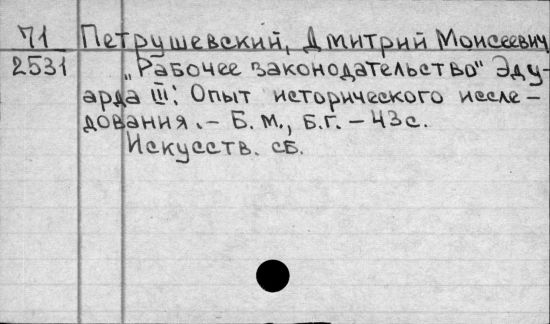 71 Петрушевский, Дмитрий Моисеевич
2531 „Рабочее законодательство" Эду-
арда III: Опыт исторического иссле-
дования. – Б. м., б. г. – 43 с.
Искусств. сб.